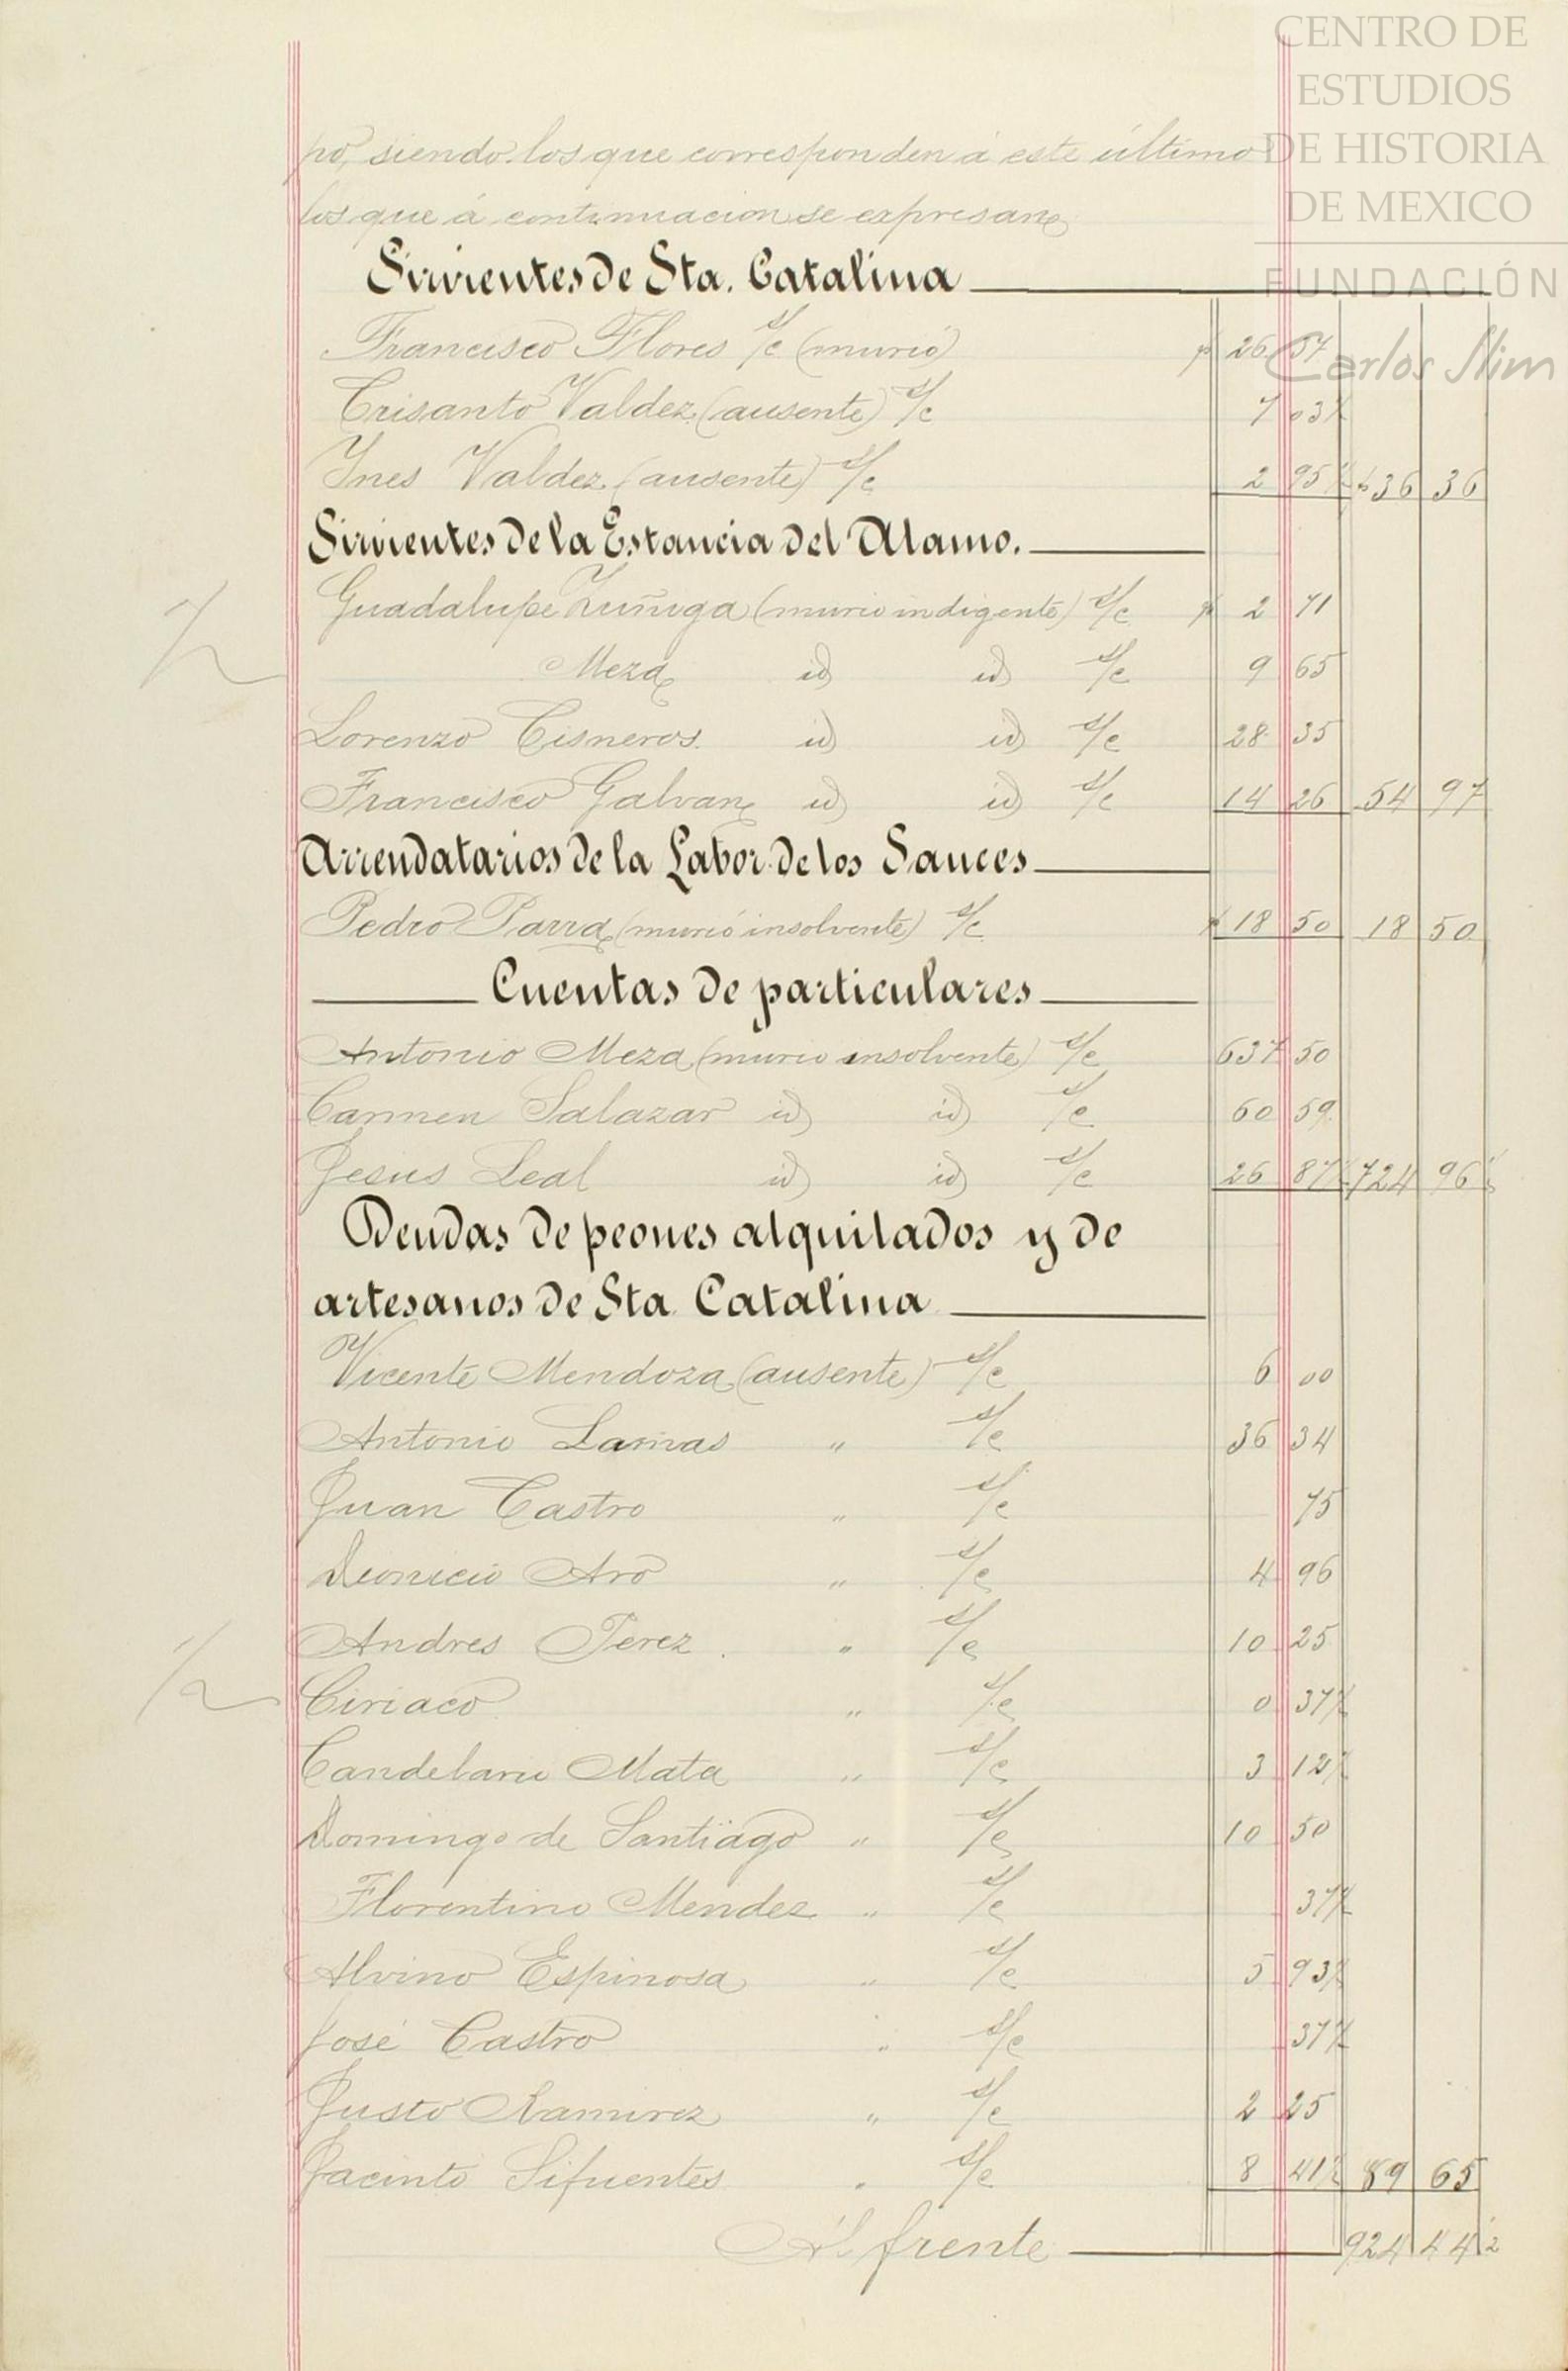 CENTRO DE
ESTUDIOS
DE HISTORIA
DE MEXICO
FUNDACIÓN
Carlos Slim
po, siendo los que corresponden á este último
los que á continuacion se expresan
Sirvientes de Sta. Catalina
Francisco Flores s/c (murió) $ 26 37
Crisanto Valdez (ausente) s/c 7 03½
Ines Valdez (ausente) s/c 2 95½ $36 36
Sirvientes de la Estancia del Alamo.
Guadalupe Zuñiga (murio indigente) s/c $ 2 71
Meza id id s/c 9 65
Lorenzo Cisneros id id s/c 28 35
Francisco Galvan id id s/c 14 26 54 97
Arrendatarios de la Labor de los Sauces
Pedro Parra (murió insolvente) s/c $ 18 50 18 50
Cuentas de particulares
Antonio Meza (murio insolvente) s/c 637 50
Carmen Salazar id id s/c 60 59
Jesus Leal id id s/c 26 87½ 724 96½
Deudas de peones alquilados y de
artesanos de Sta Catalina
Vicente Mendoza (ausente) s/c 6 00
Antonio Lamas " s/c 36 34
Juan Castro " s/c 75
Dionicio Aro " s/c 4 96
Andres Perez " s/c 10 25
½ Ciriaco " s/c 0 37½
Candelario Mata " s/c 3 12½
Domingo de Santiago " s/c 10 50
Florentino Mendez " s/c 37½
Alvino Espinosa " s/c 5 93½
José Castro " s/c 37½
Justo Ramirez " s/c 2 25
Jacinto Sifuentes " s/c 8 41½ 89 65
Al frente 924 44½